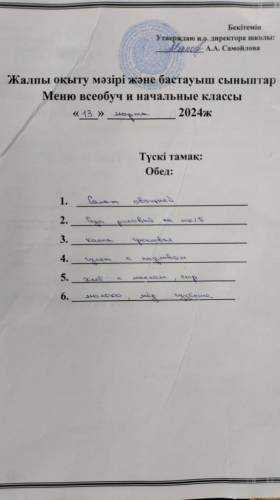 Бекітемін
Утверждаю и.о. директора школы:
А.А. Самойлова
Жалпы оқыту мәзірі және бастауыш сыныптар
Меню всеобуч и начальные классы
« 13 » марта 2024ж
Түскі тамақ:
Обед:
1. Салат овощной
2. Суп рисовый на
3. каша
4. с
5. хлеб с маслом, сыр
6. молоко,